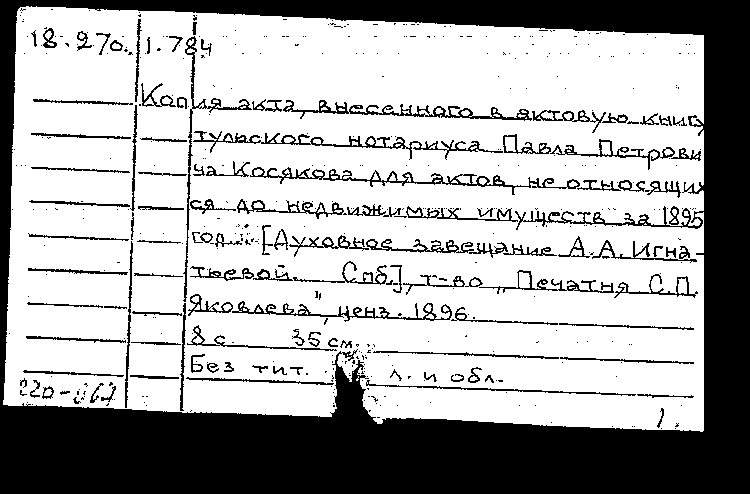 18.270. 1.784
Копия акта, внесенного в актовую книгу
тульского нотариуса Павла Петрови
ча Косякова для актов, не относящих
ся до недвижимых имуществ за 1895
год. [Духовное завещание А.А. Игна-
тьевой. Спб.], т-во „Печатня С.П.
Яковлева", ценз. 1896.
8 с. 35 см.
Без тит. л. и обл.
220-867
1.